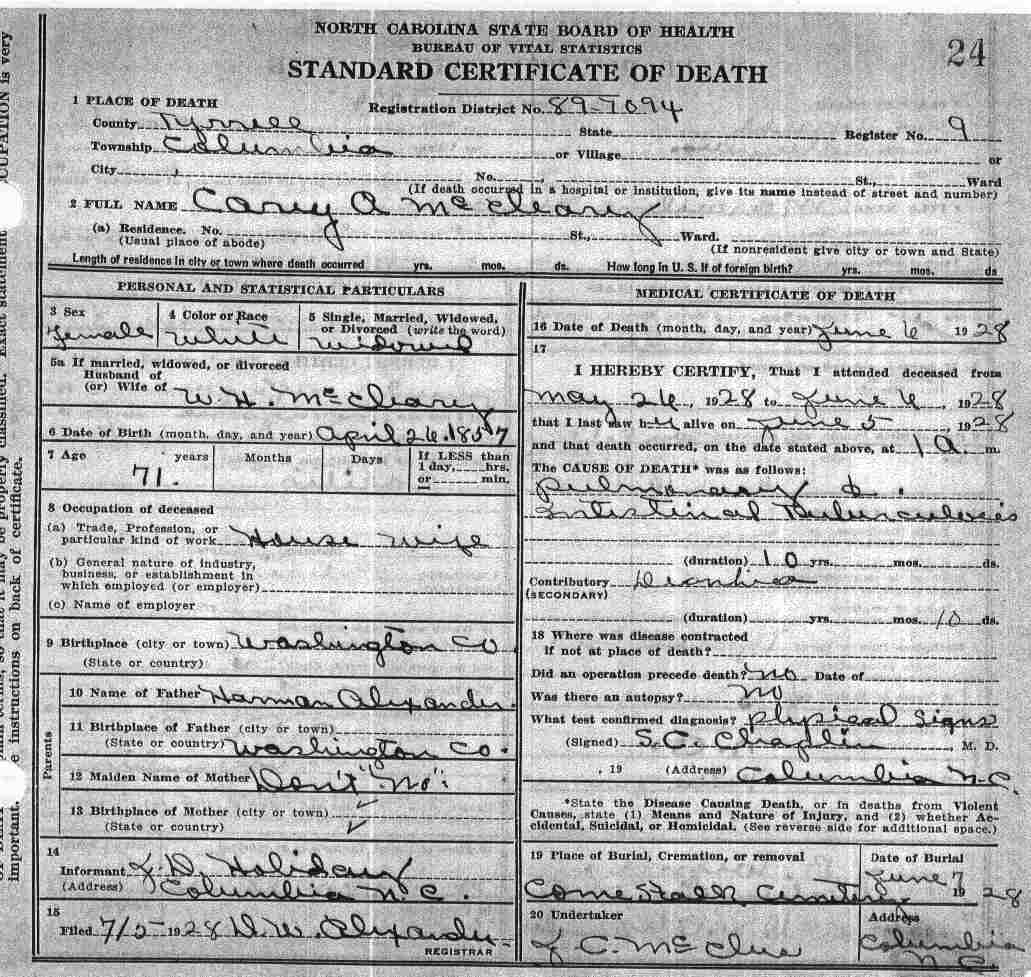 NORTH CAROLINA STATE BOARD OF HEALTH
BUREAU OF VITAL STATISTICS
STANDARD CERTIFICATE OF DEATH
24
1 PLACE OF DEATH
Registration District No. 89-7094
County Tyrrell State Register No. 9
Township Columbia or Village or
City No. St., Ward
(If death occurred in a hospital or institution, give its name instead of street and number)
2 FULL NAME Carey A McCleary
(a) Residence. No. St., Ward.
(Usual place of abode) (If nonresident give city or town and State)
Length of residence in city or town where death occurred yrs. mos. ds. How long in U. S. if of foreign birth? yrs. mos. ds
PERSONAL AND STATISTICAL PARTICULARS
3 Sex 4 Color or Race 5 Single, Married, Widowed, or Divorced (write the word)
Female White Widowed
5a If married, widowed, or divorced
Husband of
(or) Wife of W. H. McCleary
6 Date of Birth (month, day, and year) April 26. 1857
7 Age years Months Days If LESS than
1 day, hrs.
or min.
71.
8 Occupation of deceased
(a) Trade, Profession, or
particular kind of work House wife
(b) General nature of industry,
business, or establishment in
which employed (or employer)
(c) Name of employer
9 Birthplace (city or town) Washington Co
(State or country)
Parents
10 Name of Father Harman Alexander.
11 Birthplace of Father (city or town)
(State or country) Washington Co.
12 Maiden Name of Mother Don't "No".
13 Birthplace of Mother (city or town)
(State or country)
14
Informant J. D. Holiday
(Address) Columbia N. C.
15
Filed 7/5 1928 D. W. Alexander
REGISTRAR
MEDICAL CERTIFICATE OF DEATH
16 Date of Death (month, day, and year) June 6 1928
17
I HEREBY CERTIFY, That I attended deceased from
May 26, 1928 to June 6, 1928
that I last saw h er alive on June 5, 1928
and that death occurred, on the date stated above, at 1 A. m.
The CAUSE OF DEATH* was as follows:
Pulmonary &
Intestinal Tuberculosis
(duration) 10 yrs. mos. ds.
Contributory Diarrhea
(SECONDARY)
(duration) yrs. mos. 10 ds.
18 Where was disease contracted
if not at place of death?
Did an operation precede death? No Date of
Was there an autopsy? No
What test confirmed diagnosis? Physical Signs
(Signed) S. C. Chaplin, M. D.
, 19 (Address) Columbia N. C.
*State the Disease Causing Death, or in deaths from Violent
Causes, state (1) Means and Nature of Injury, and (2) whether Ac-
cidental, Suicidal, or Homicidal. (See reverse side for additional space.)
19 Place of Burial, Cremation, or removal Date of Burial
June 7 1928
Cemetery
20 Undertaker Address
J C. McClees Columbia
N. C.
CUPATION is very
Exact statement
classified.
so that it may be properly
instructions on back of certificate.
important.